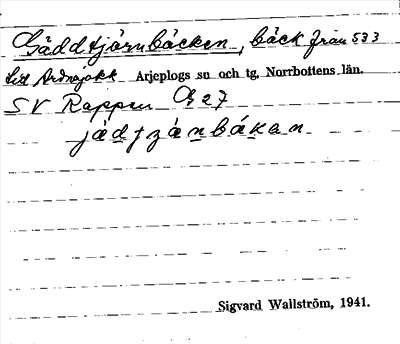 Gäddtjärnbäcken, bäck från 533
till Ardnajokk Arjeplogs sn och tg, Norrbottens län.
SV Rappen G 27
jädtjänbäkan
Sigvard Wallström, 1941.